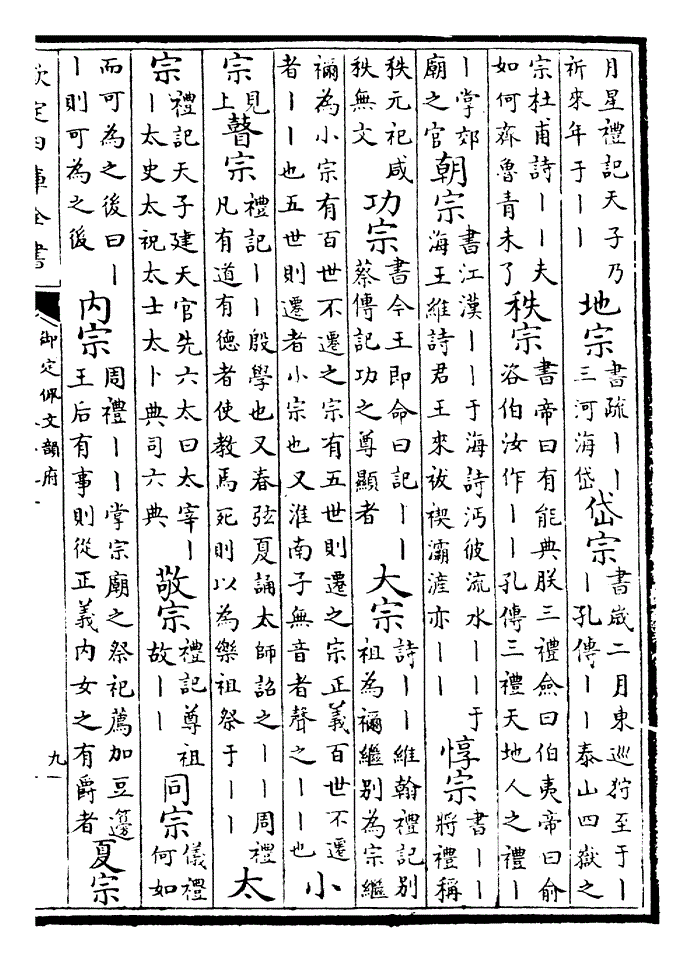 月星禮記天子乃祈來年于丨丨地宗書疏丨丨三河海岱岱宗書歲二月東巡狩至于丨丨孔傳丨丨泰山四嶽之
宗杜甫詩丨丨夫如何齊魯青未了秩宗書帝曰有能典朕三禮僉曰伯夷帝曰俞咨伯汝作丨丨孔傳三禮天地人之禮丨
丨掌郊廟之官朝宗書江漢丨丨于海詩沔彼流水丨丨于海王維詩君王來祓禊灞滻亦丨丨惇宗書丨丨將禮稱
秩元祀咸秩無文功宗書今王即命曰記丨丨蔡傳記功之尊顯者大宗詩丨丨維翰禮記别祖為禰繼别為宗繼
禰為小宗有百世不遷之宗有五世則遷之宗正義百世不遷者丨丨也五世則遷者小宗也又淮南子無音者聲之丨丨也小
宗見上瞽宗禮記丨丨殷學也又春弦夏誦太師詔之丨丨周禮凡有道有德者使教焉死則以為樂祖祭于丨丨太
宗禮記天子建天官先六太曰太宰丨丨太史太祝太士太卜典司六典敬宗禮記尊祖故丨丨同宗儀禮何如
而可為之後曰丨丨則可為之後内宗周禮丨丨掌宗廟之祭祀薦加豆籩王后有事則從正義内女之有爵者夏宗
欽定四庫全書
御定佩文韻府
九